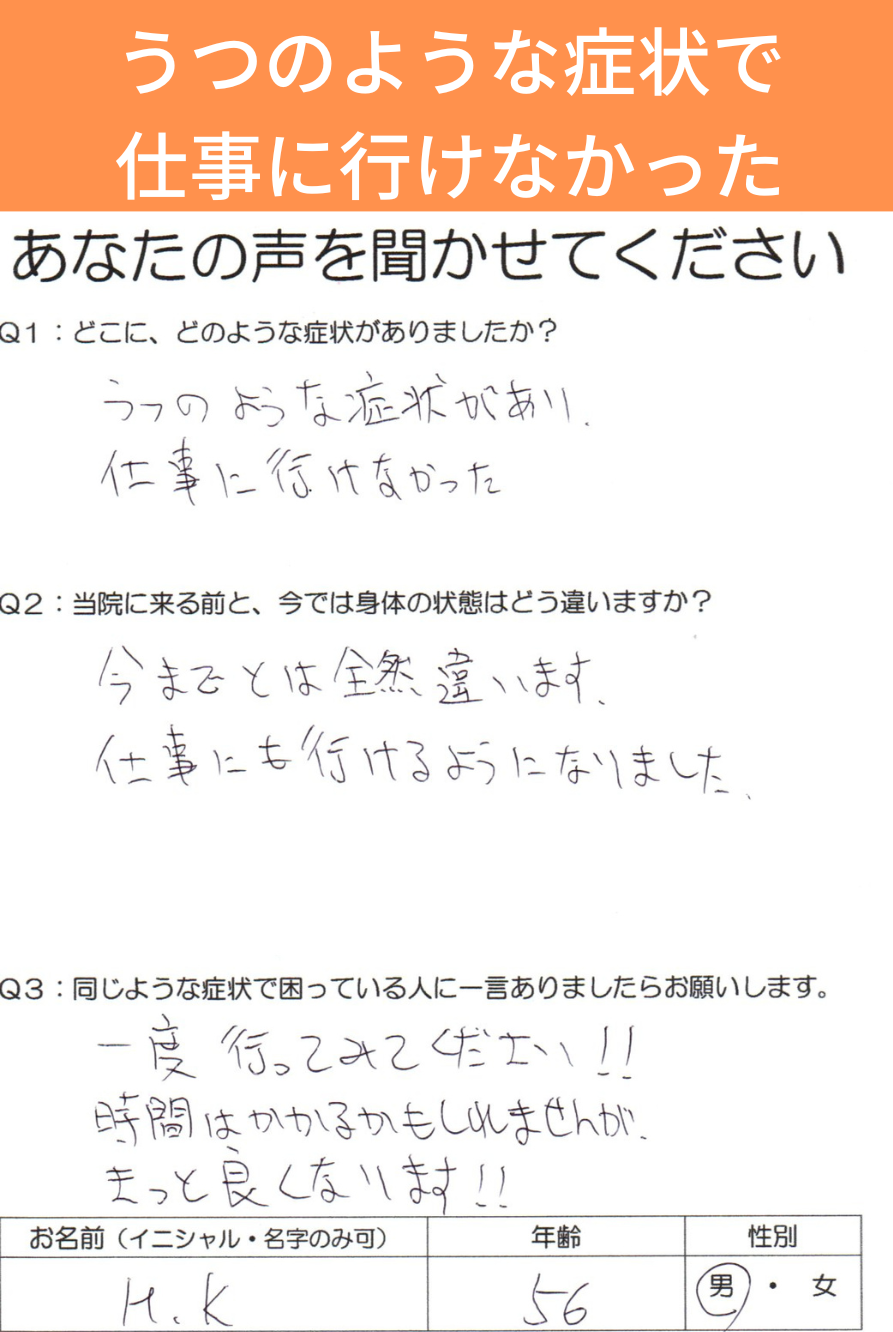 うつのような症状で
仕事に行けなかった
あなたの声を聞かせてください
Q1：どこに、どのような症状がありましたか？
うつのような症状があり、
仕事に行けなかった
Q2：当院に来る前と、今では身体の状態はどう違いますか？
今までとは全然違います、
仕事にも行けるようになりました、
Q3：同じような症状で困っている人に一言ありましたらお願いします。
一度行ってみてください!!
時間はかかるかもしれませんが、
きっと良くなります!!
お名前（イニシャル・名字のみ可） 年齢 性別
H.K 56 男・女